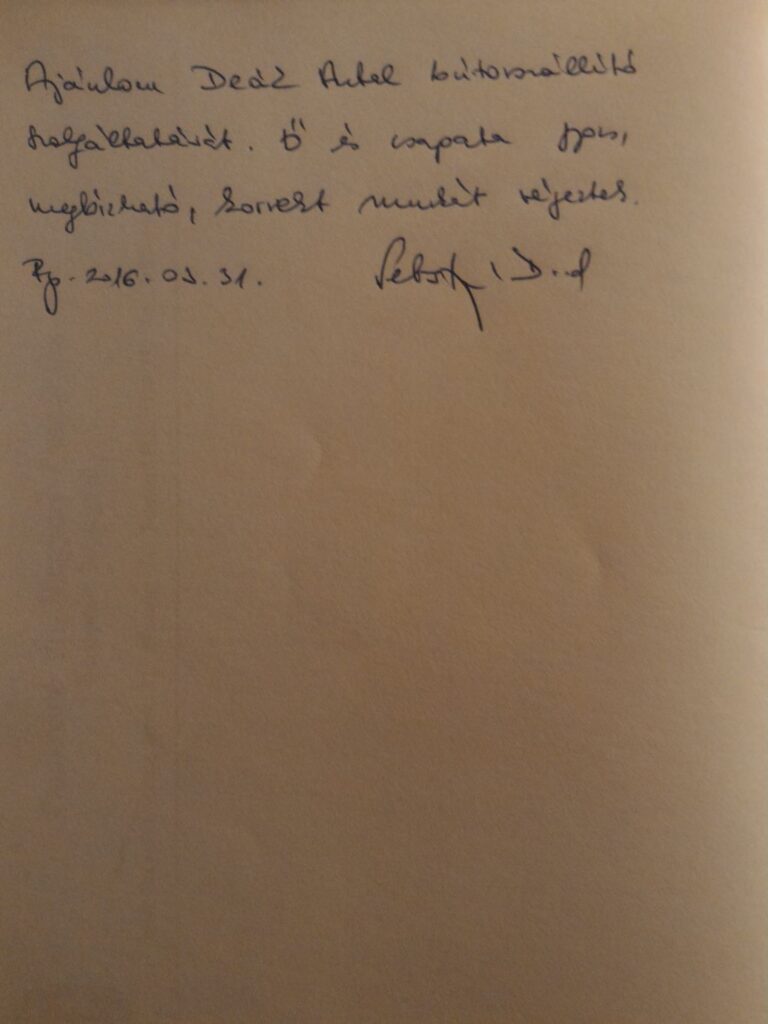 Ajánlom Deák Antal bútorszállító
szolgáltatását. Ő és csapata gyors,
megbízható, korrekt munkát végeztek.
Bp. 2016. 03. 31.